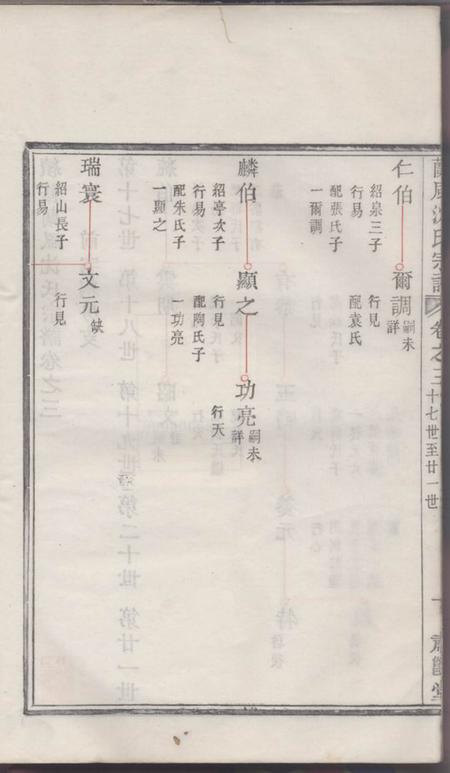 蘭風沈氏宗譜 卷之三 十七世至廿一世
仁伯
紹泉三子
行易
配張氏子
一爾調
爾調
嗣未
詳
行見
配袁氏
麟伯
紹亭次子
行易
配朱氏子
一顯之
顯之
行見
配陶氏子
一功亮
功亮
嗣未
詳
行天
瑞寰
紹山長子
行易
文元
缺
行見